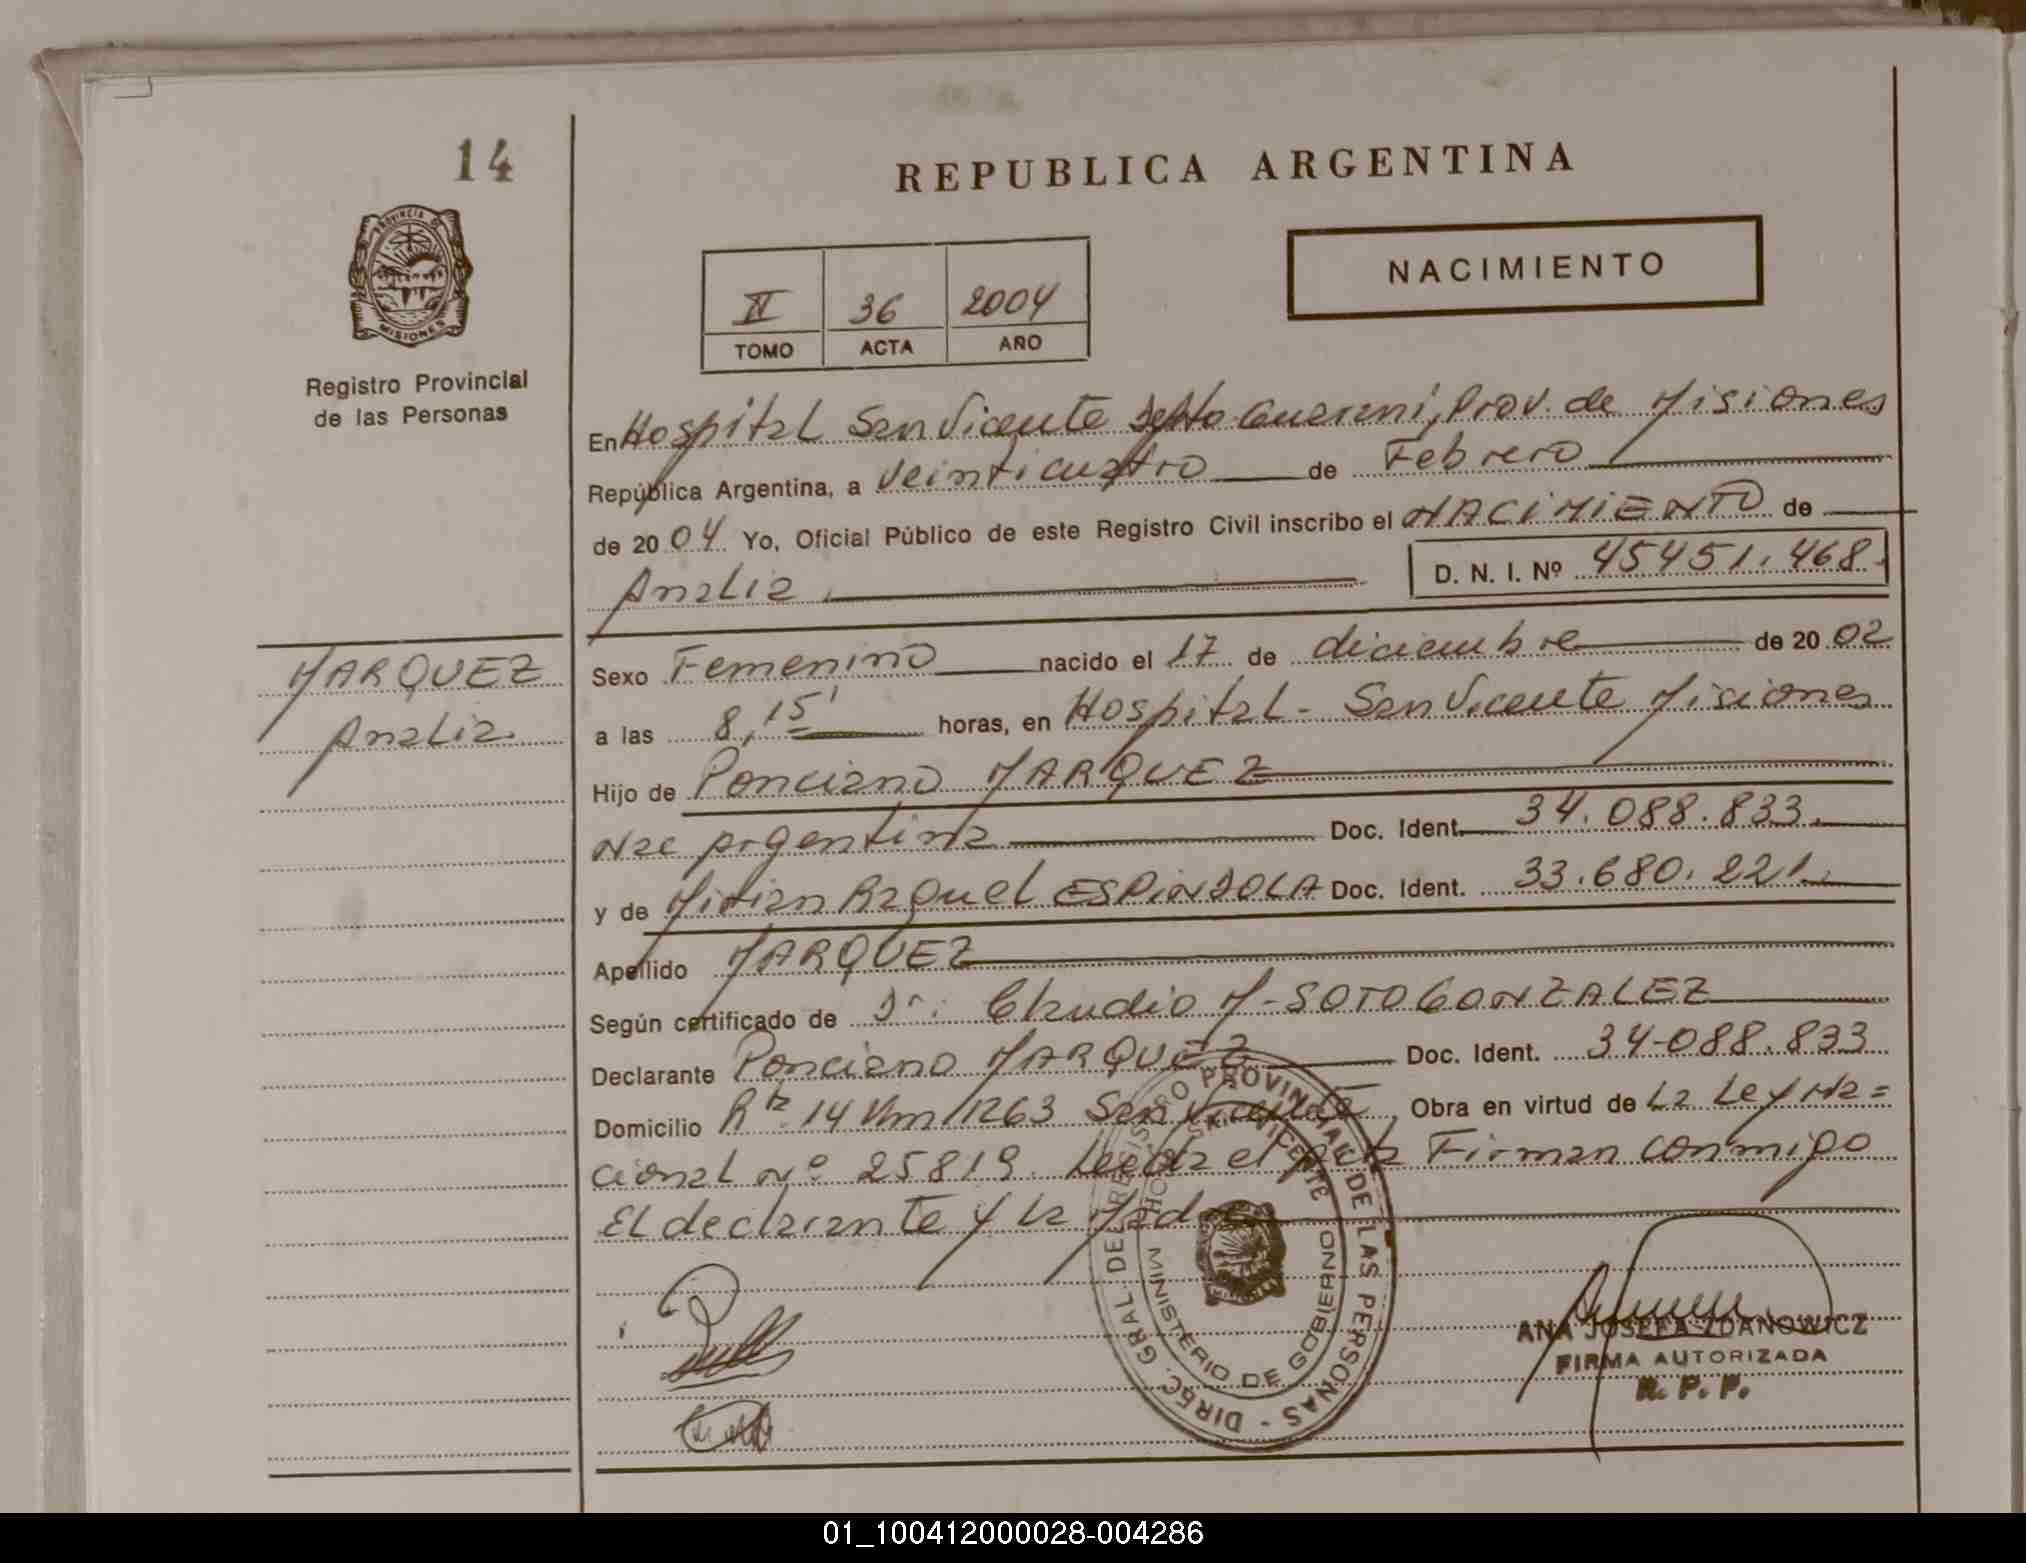 14
REPUBLICA ARGENTINA
PROVINCIA DE
MISIONES
Registro Provincial
de las Personas
NACIMIENTO
II 36 2004
TOMO ACTA AÑO
En Hospital San Vicente Depto Guarani, Prov. de Misiones
República Argentina, a veinticuatro de Febrero
de 2004 Yo, Oficial Público de este Registro Civil inscribo el NACIMIENTO de
Analia. D. N. I. Nº 45451.468.
MARQUEZ
Analia.
Sexo Femenino nacido el 17 de diciembre de 2002
a las 8,15' horas, en Hospital - San Vicente Misiones
Hijo de Ponciano MARQUEZ
Nac Argentina Doc. Ident. 34.088.833.
y de Mirian Raquel ESPINDOLA Doc. Ident. 33.680.221.
Apellido MARQUEZ
Según certificado de Dr: Claudio M-SOTO GONZALEZ
Declarante Ponciano MARQUEZ Doc. Ident. 34-088.833
Domicilio Rta. 14 Km 1263 San Vicente, Obra en virtud de La Ley Na=
cional Nº 25819. Leída el acta Firman conmigo
El declarante y la Madre
DIREC. GRAL. DEL REGISTRO PROVINCIAL DE LAS PERSONAS -
SAN VICENTE
MINISTERIO DE GOBIERNO
ANA JOSEFA ZDANOWICZ
FIRMA AUTORIZADA
R. P. P.
01_100412000028-004286